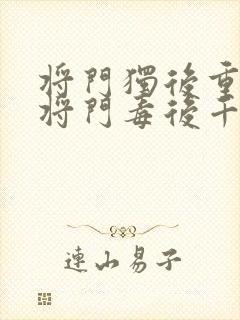 將門獨後重
將門毒後千
連山易子